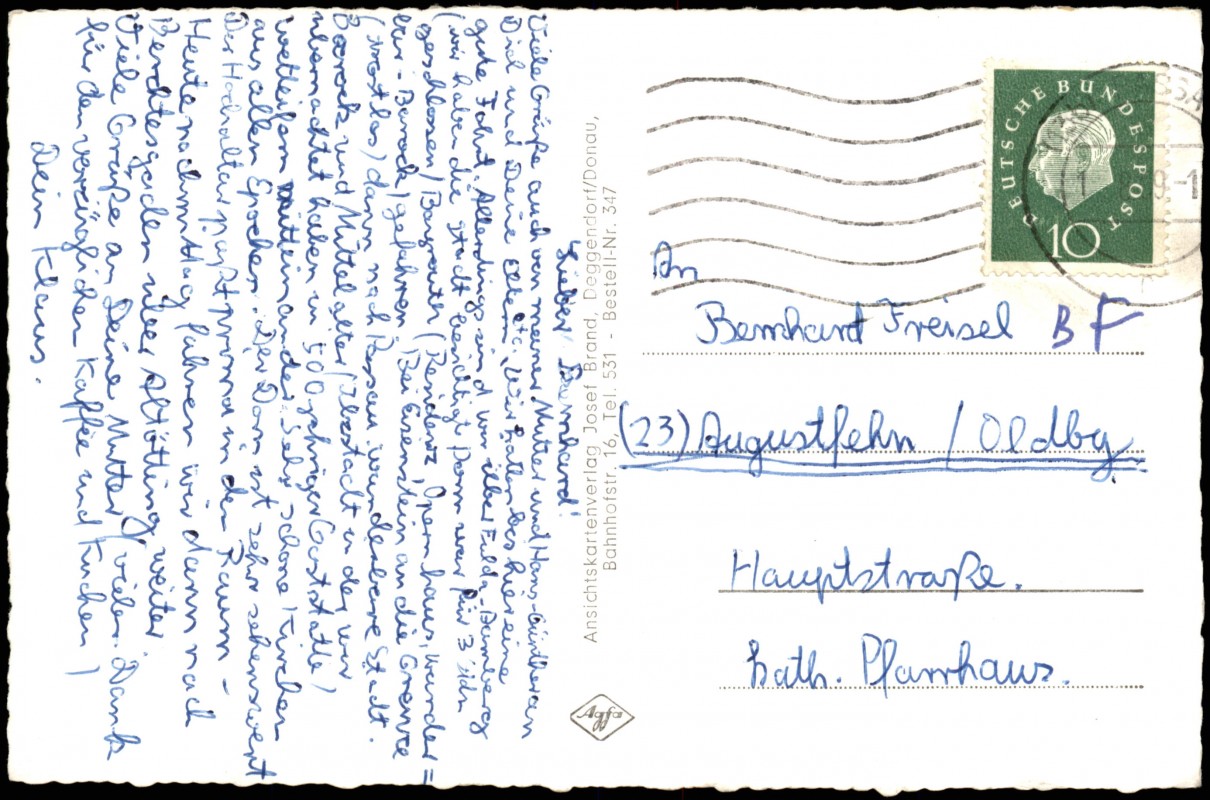 Lieber Bernhard!
Viele Grüße auch von meiner Mutter und Hans-Günther an
Dich und Deine Eltern etc. Wir hatten bis hier eine
gute Fahrt. Allerdings sind wir über Fulda-Bamberg
(wir haben die Stadt besichtigt Dom war für 3 Uhr
geschlossen) Bayreuth (Residenz, Opernhaus, wunder=
bar-Barock) gefahren. Bei Eisenstein an die Grenze
(trostlos) dann nach Passau. Wunderbare Stadt.
Barock und Mittelalter (Ilzstadt in der wir
übernachtet haben in 500jähriger Gaststätte)
wetteifern miteinander. Sehr schöne Kirchen
aus allen Epochen. Der Dom ist sehr sehenswert
Der Hochaltar paßt prima in den Raum -
Heute nachmittag fahren wir dann nach
Berchtesgaden über Altötting weiter.
Viele Grüße an Deine Mutter (vielen Dank
für den vorzüglichen Kaffee und Kuchen)
Dein Klaus.
Ansichtskartenverlag Josef Brand, Deggendorf/Donau,
Bahnhofstr. 16, Tel. 531 - Bestell-Nr. 347
Agfa
DEUTSCHE BUNDESPOST
10
An
Bernhard Freisel BF
(23) Augustfehn / Oldbg
Hauptstraße.
kath. Pfarrhaus.